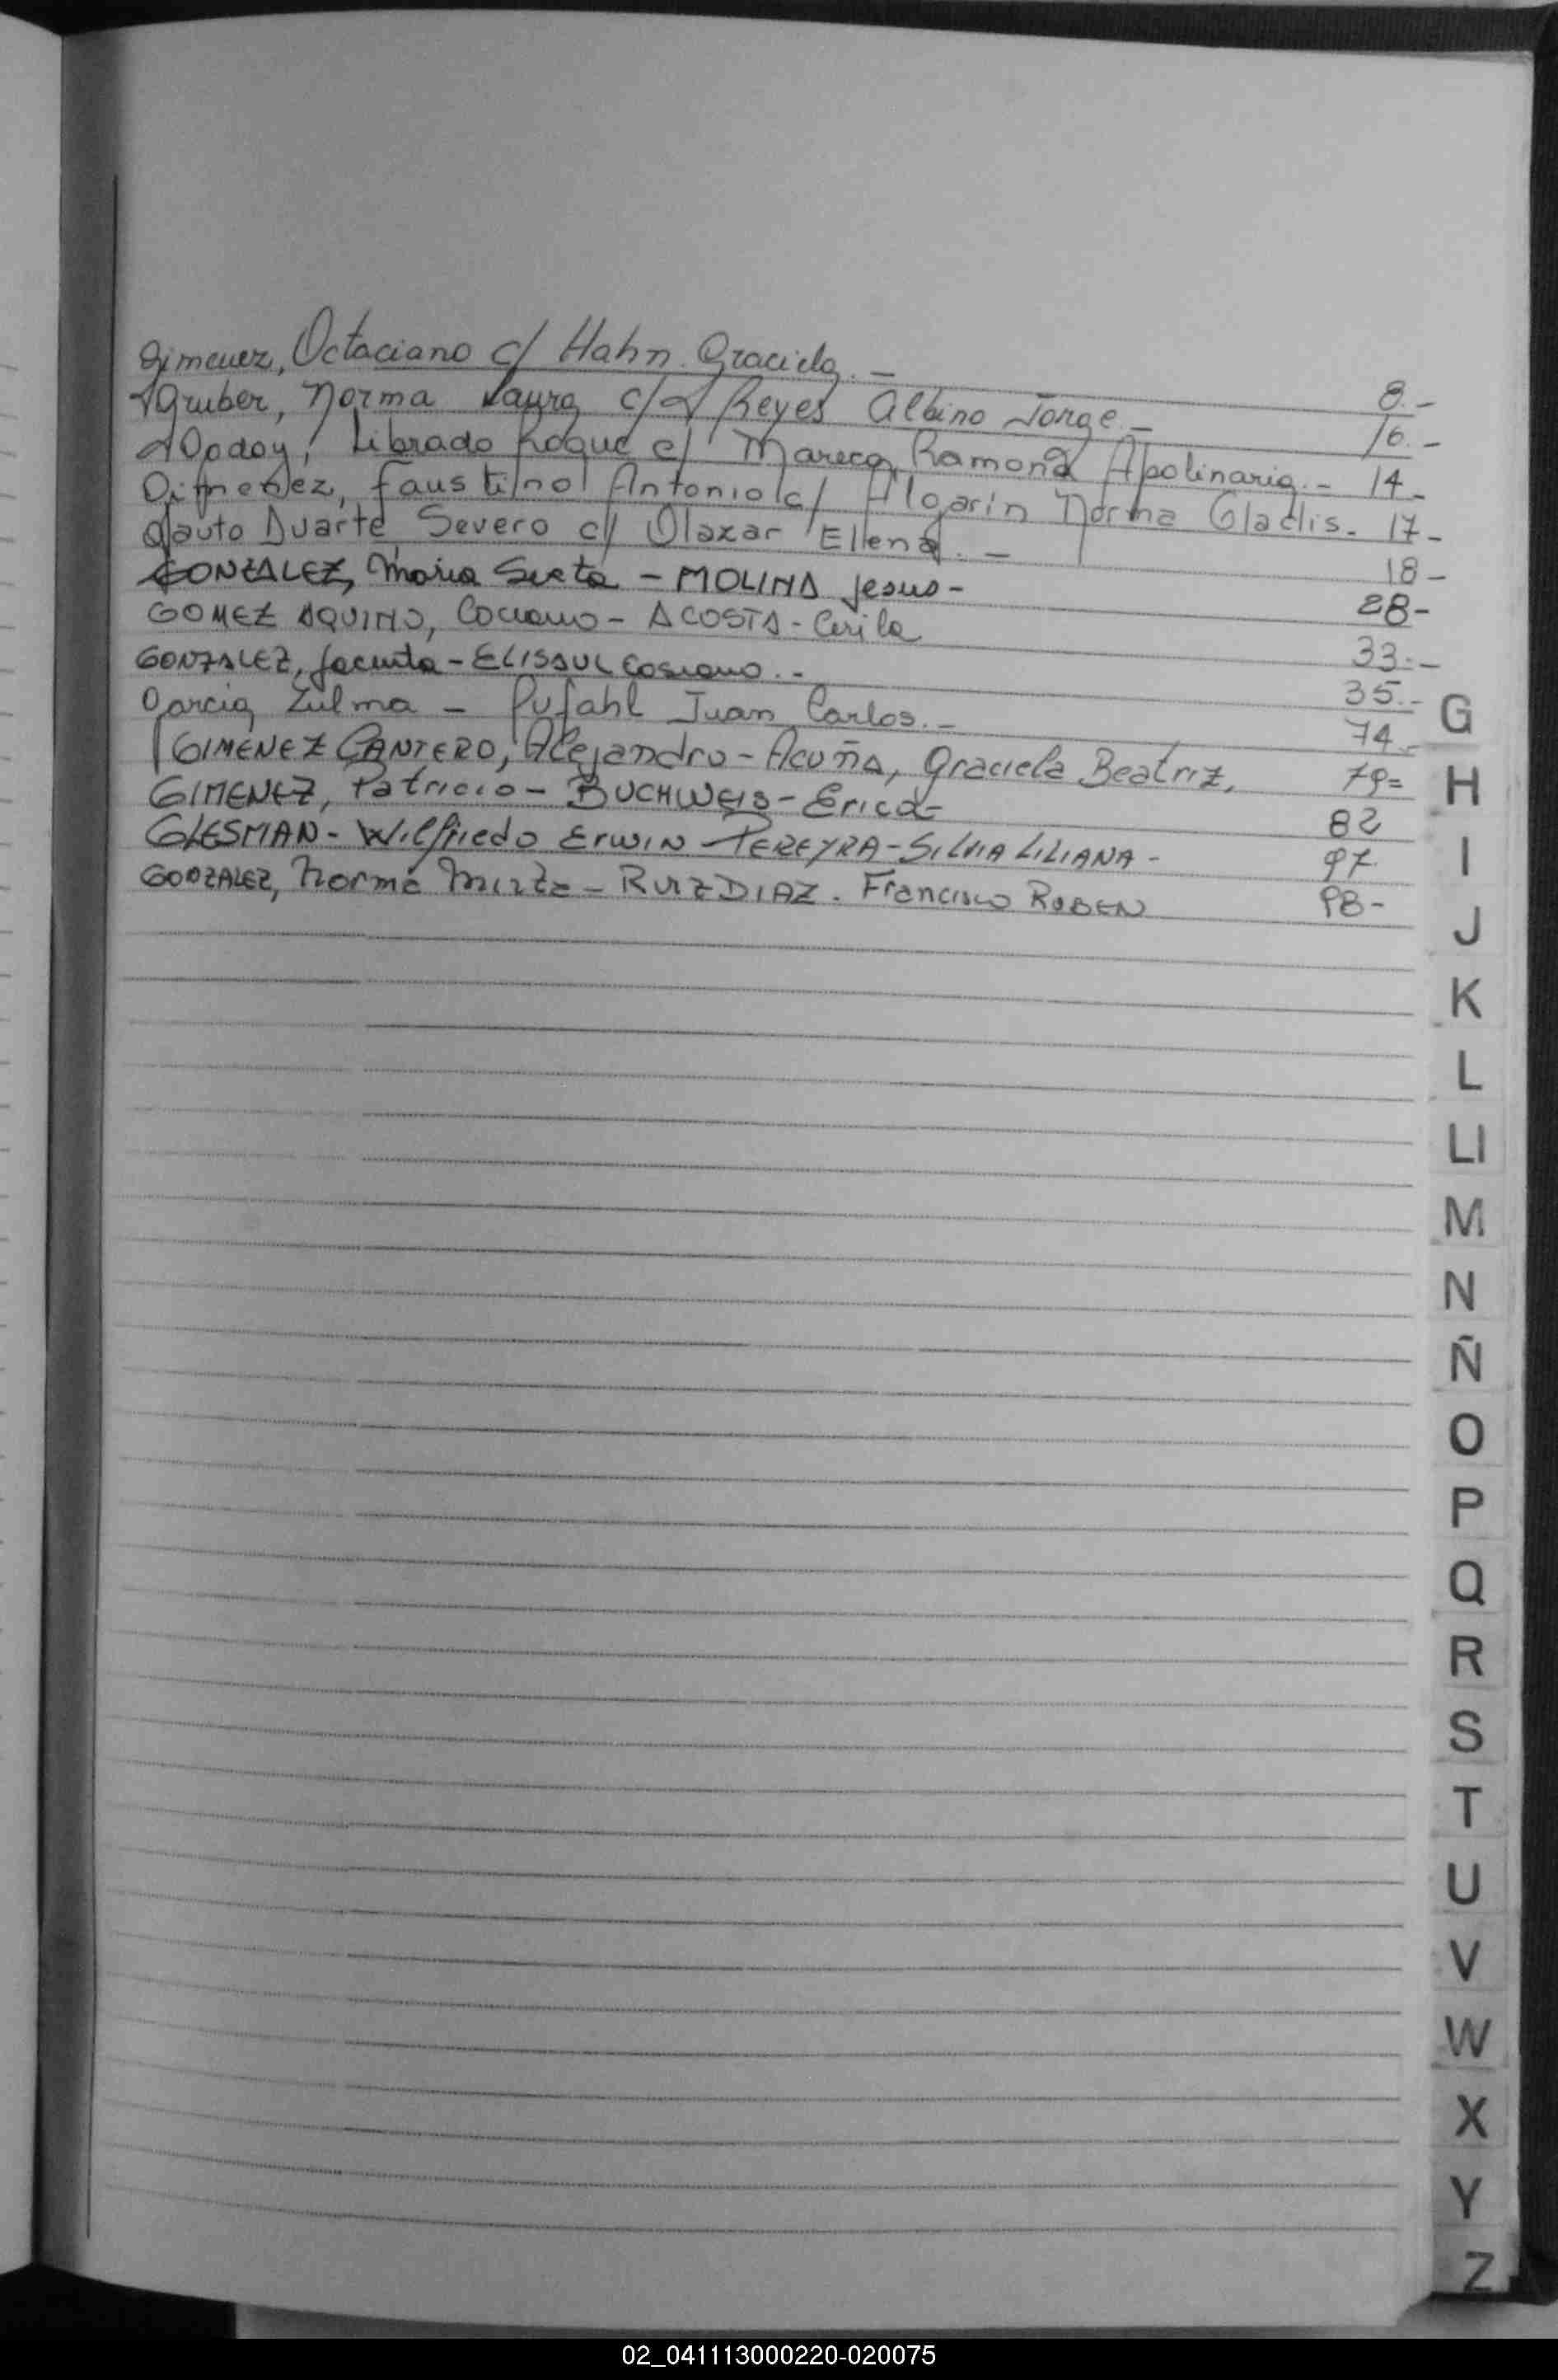 Gimenez, Octaciano c/ Hahn Graciela. — 8.-
Gruber, Norma Laura c/ Reyes Albino Jorge. — 16.-
Godoy, Librado Roque c/ Mareco, Ramona Apolinaria. - 14-
Gimenez, Faustino Antonio c/ Algarin Norma Gladis. 17-
Gauto Duarte Severo c/ Olazar Ellena. — 18-
GONZALEZ, Maria - MOLINA Jesus - 28-
GOMEZ AQUINO, - ACOSTA - Cirila 33.-
GONZALEZ, Jacinta - Casiano. - 35.-
Garcia, Zulma - Pufahl Juan Carlos. - 74.-
GIMENEZ CANTERO, Alejandro - Acuña, Graciela Beatriz. 79=
GIMENEZ, Patricio - BUCHWEIS - Erica - 82
GLESMAN - Wilfriedo ERWIN - PEREYRA - SILVIA LILIANA - 97
GONZALEZ, Norma Mirta - RUIZ DIAZ. Francisco RUBEN 98-
G
H
I
J
K
L
Ll
M
N
Ñ
O
P
Q
R
S
T
U
V
W
X
Y
Z
02_041113000220-020075